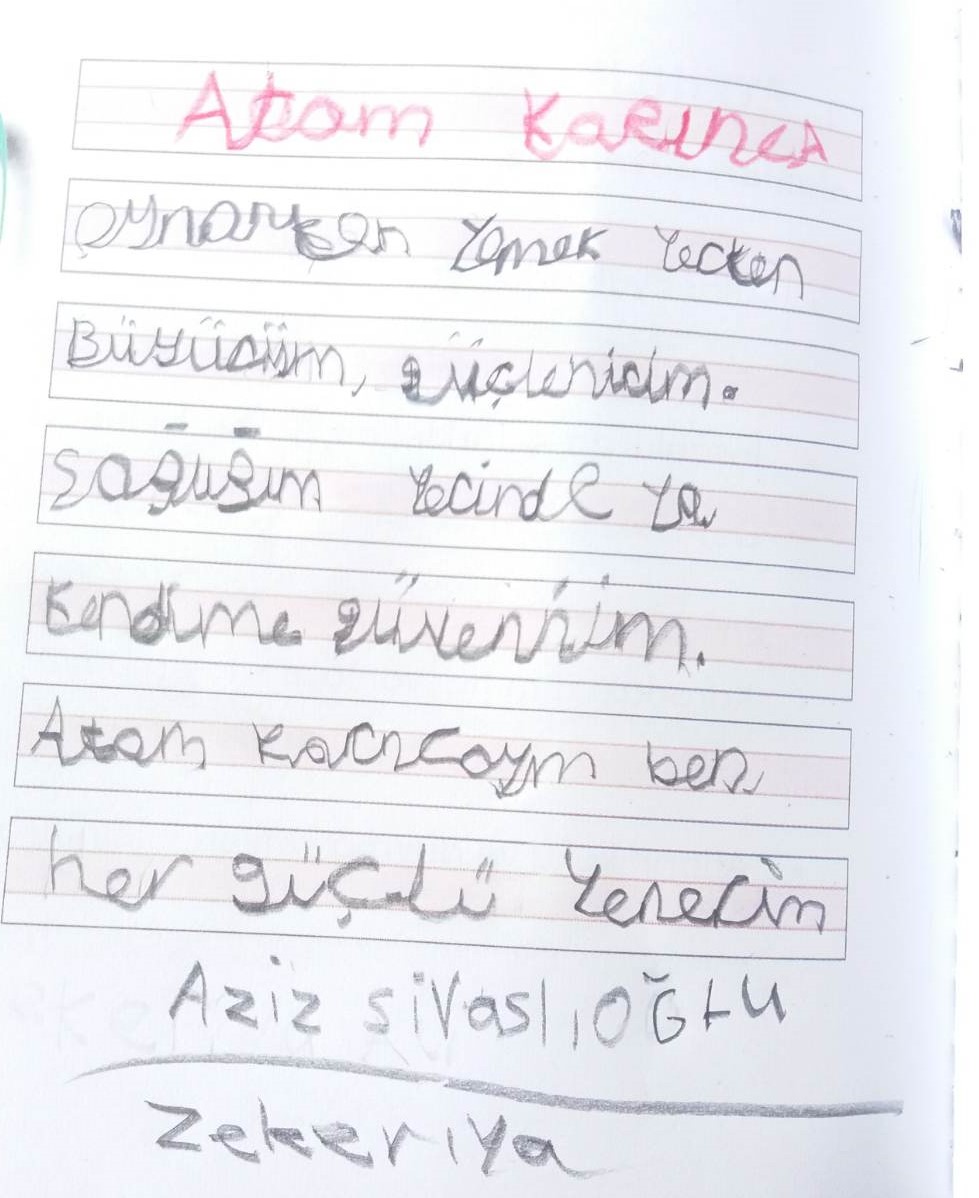 Atom KaRınCA
Oynarken Yemek Yerken
Büyürüm, güçlenirim.
Sağlığım Yerinde Ya
Kendime güvenirim.
Atom Karıncaym ben
her güçlü Yenerim
Aziz SiVaslıOĞLU
Zekeriya